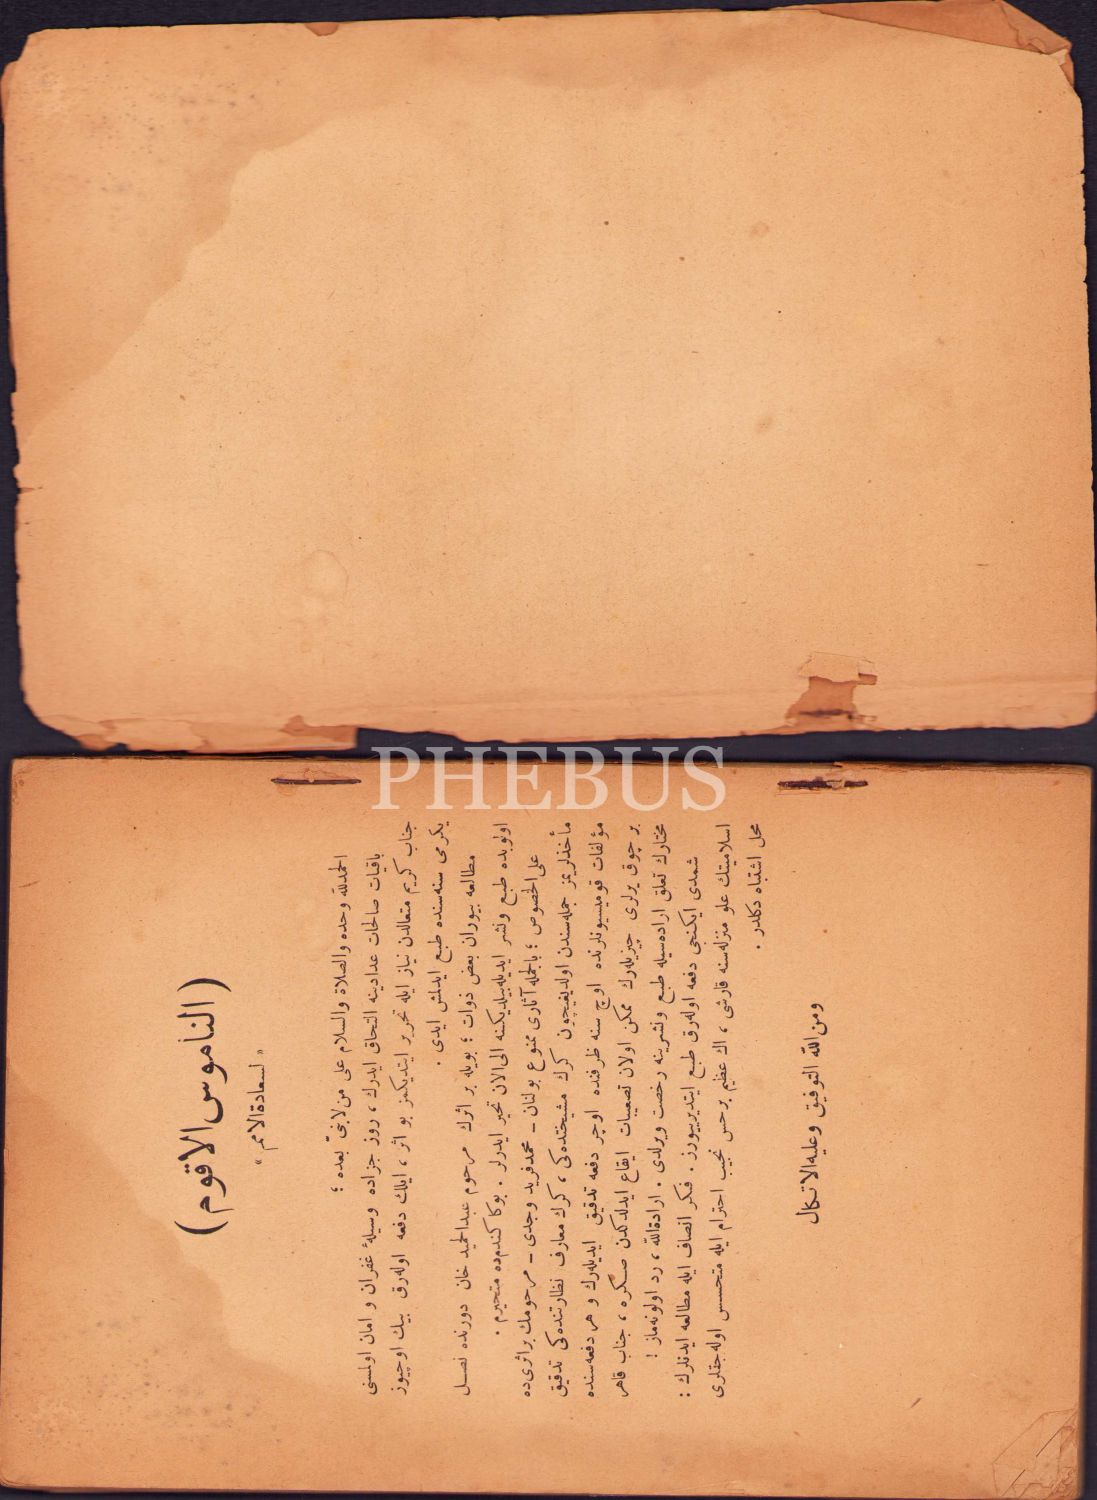 PHEBUS
(الناموس الاقوم)
« لسعادة الامم »
الحمدلله وحده والصلاة والسلام على من لانبى بعده ؛
باقيات صالحات عدادينه التحاق ايدرك ، روز جزاده وسيلهٔ غفران و امان اولمسنى
جناب كريم متعالدن نياز ايله تحرير ايتديكمز بو اثر ، ايلك دفعه اوله‌رق بيك اوچيوز
يكرمى سنه‌سنده طبع ايدلمش ايدى .
مطالعه بيوران بعض ذوات ؛ بويله بر اثرك مرحوم عبدالحميد خان دورنده نصل
اولوبده طبع ونشر ايديله‌بيلديكنه الى‌الان تحير ايدرلر . بوكا كندم‌ده متحيرم .
على‌الخصوص ؛ بالجمله آثارى ممنوع بولنان ـ محمد فريد وجدى ـ مرحومك بر اثرى‌ده
مأخذلريمز جمله‌سندن اولديغيچون كرك مشيختده‌كى ، كرك معارف نظارتنده‌كى تدقيق
مؤلفات قوميسيونلرنده اوچ سنه ظرفنده اوچر دفعه تدقيق ايديله‌رك و هر دفعه‌سنده
بر چوق يرلرى چيزيله‌رك ممكن اولان تصعيبات ايقاع ايدلدكدن صكره ، جناب قاهر
مختارك تعلق اراده‌سيله طبع ونشرينه رخصت ويرلدى . ارادةالله ، رد اولونه‌ماز !
شمدى ايكنجى دفعه اوله‌رق طبع ايتديرييورز . فكر انصاف ايله مطالعه ايدنلرك :
اسلاميتك علو منزله‌سنه قارشى ، اك عظيم بر حس نجيب احترام ايله متحسس اوله‌جقلرى
محل اشتباه دكلدر .
ومن الله التوفيق وعليه الاتكال